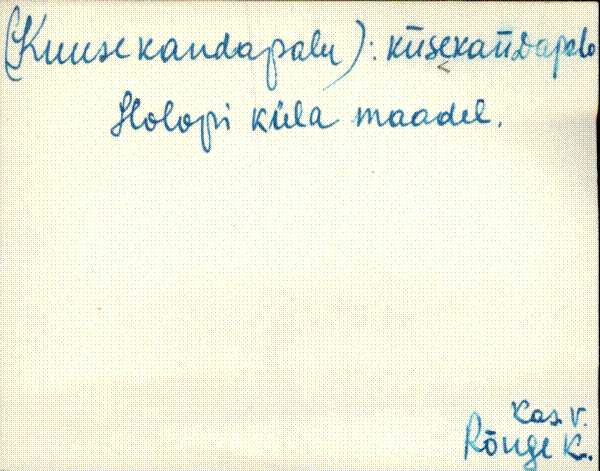 (Kuusekandapalu): kūsekaūdapalo
Holopi küla maadel.
Kas. v.
Rõuge K.